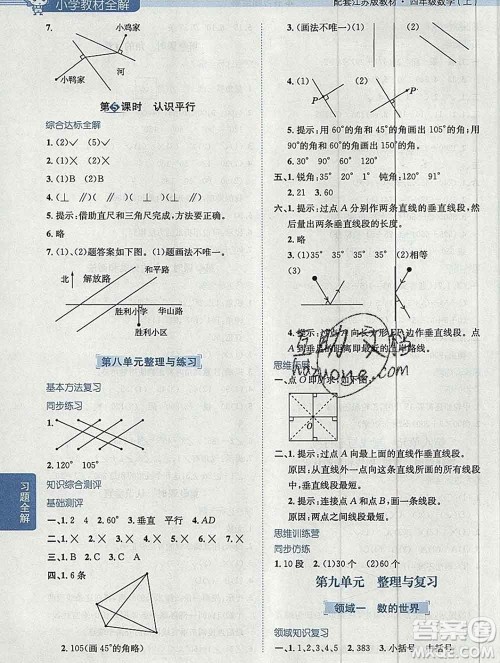 小学教材全解
配套江苏版教材·四年级数学(上)
7.
小鸡家
小鸭家
河
第⑤课时 认识平行
综合达标全解
1.(2)√ (5)√
2.(1)× (2)√ (3)×
3.(1)B (2)A
4.(√)(√)( )(√)( )(√)
5.提示:借助直尺和三角尺完成,方法不唯一。
6.略
7.(1)(2)题答案如下图。(画法不唯一。)
北
解放路
和平路
胜利小学
华山路
胜利影院
第八单元整理与练习
基本方法复习
同步练习
1.
2.120° 105°
知识综合测评
基础测评
一、1.2 4 2.60° 3.垂直 平行 4.AD
二、1.B 2.C 3.A 4.C
三、1.× 2.√ 3.× 4.×
四、1.6条
2.105(画45°的角略)
习题全解
3.(画法不唯一)
P
P
4.略
5.提示:用60°的角和45°的角画出105°的角;用90°的角和60°的角画出150°的角。
6.30° 90° 60° 120°
五、1.锐角:35° 15° 75° 钝角:120°
2.21 3.60
六、1.提示:过点A分别作两条直线的垂直线段,然后量出两条垂直线段的长度。
2.(1)35° 35° 35° 35° (2)相等
(3)
3.提示:过点A向小河作垂直线段,因为垂直线段的距离最短,所以是最近的行走路线。
思维拓展
一、点O即所求,如下图。
O
二、1.提示:过点A向直线作垂直线段最短。
原因:从直线外一点向这条直线所画的所有线段中,垂直线段最短。
2.提示:以点A为顶点的直角。
原因:平角是180°,平角减去直角等于90°。
思维训练营
同步仿练
1.10个 2.(1)30个 (2)60个
第九单元 整理与复习
领域一 数的世界
领域知识复习
互助文档
hdzuoye.com
作业帮